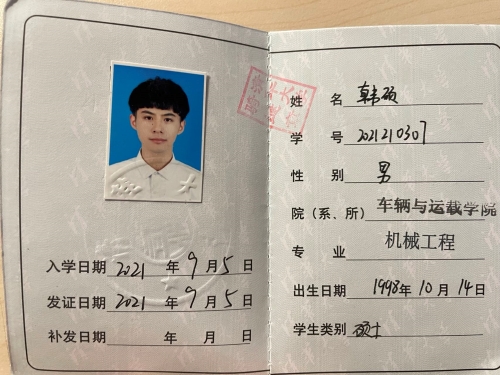 入学日期 2021 年 9 月 5 日
发证日期 2021 年 9 月 5 日
补发日期 年 月 日
姓 名 韩硕
学 号 202120307
性 别 男
院(系、所) 车辆与运载学院
专 业 机械工程
出生日期 1998年 10月 14日
学生类别 硕士